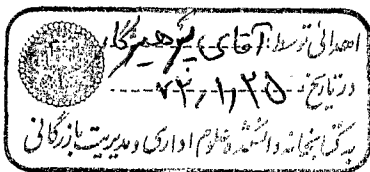 اهدائی توسط: آقای پرهیزگار
در تاریخ: ۷۳،۱،۲۵
به کتابخانه دانشکده علوم اداری و مدیریت بازرگانی